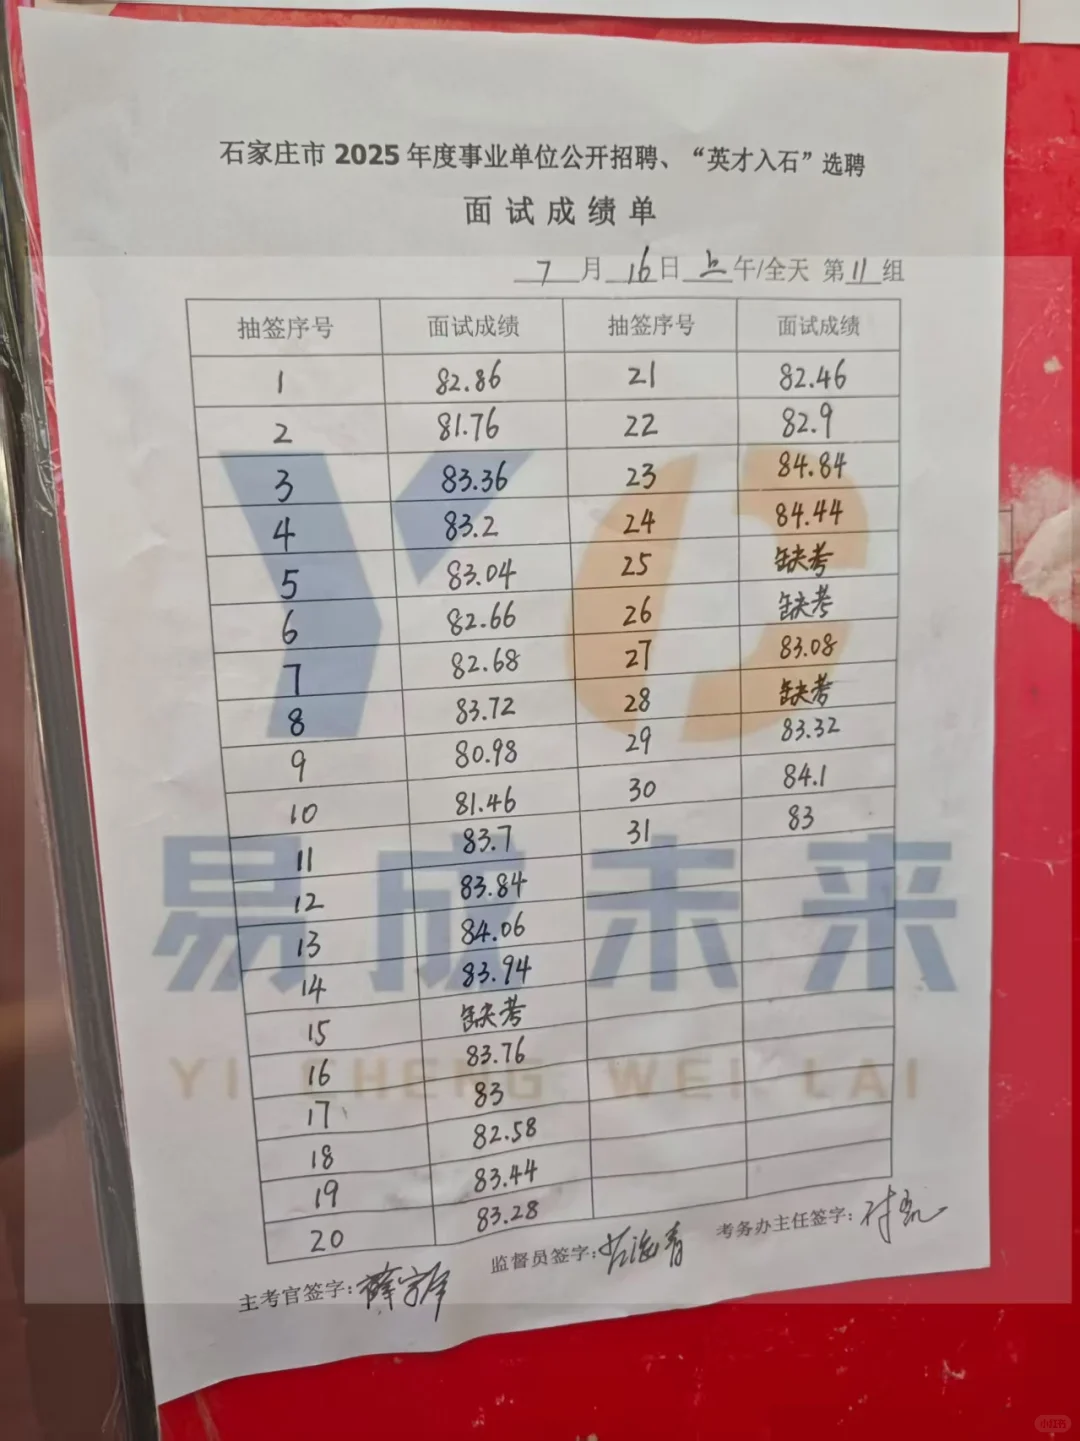 石家庄市 2025 年度事业单位公开招聘、“英才入石”选聘
面试成绩单
7月16日上午/全天 第11组
抽签序号 面试成绩 抽签序号 面试成绩
1 82.86 21 82.46
2 81.76 22 82.9
3 83.36 23 84.84
4 83.2 24 84.44
5 83.04 25 缺考
6 82.66 26 缺考
7 82.68 27 83.08
8 83.72 28 缺考
9 80.98 29 83.32
10 81.46 30 84.1
11 83.7 31 83
12 83.84
13 84.06
14 83.94
15 缺考
16 83.76
17 83
18 82.58
19 83.44
20 83.28
主考官签字: 监督员签字: 考务办主任签字:
YC
易成未来
YI CHENG WEI LAI
小红书